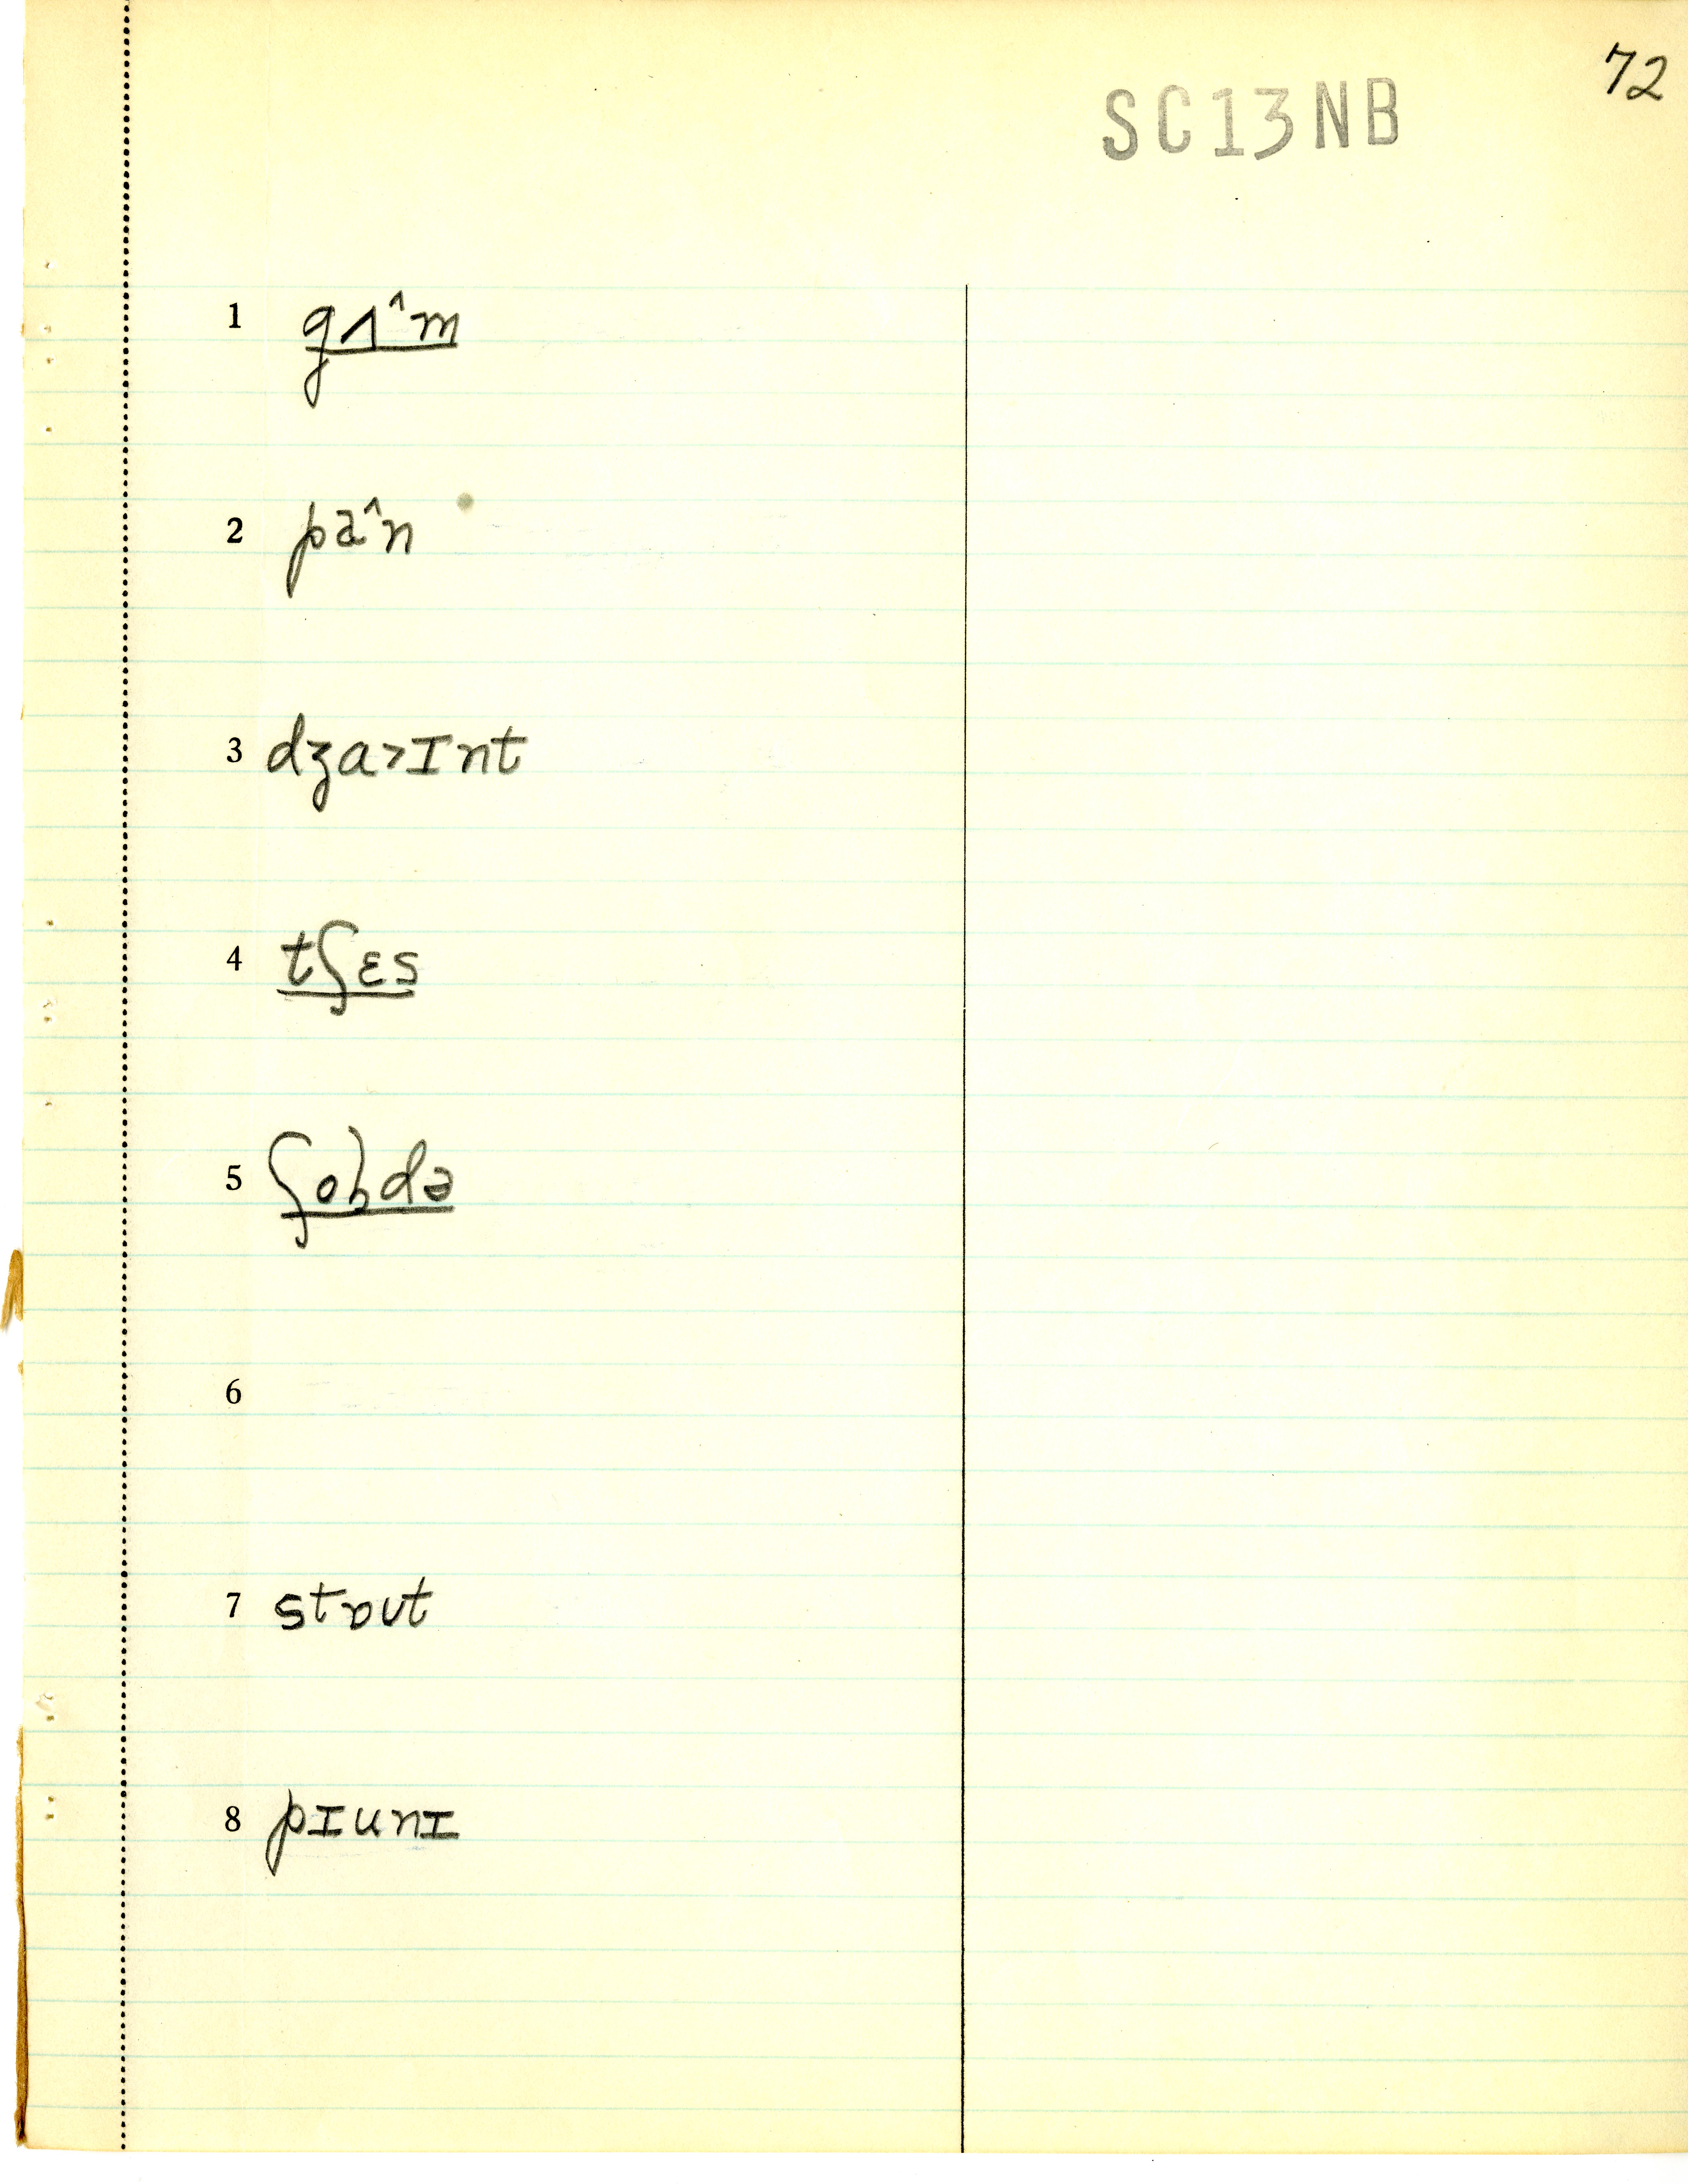 72
SC13NB
1 gʌ^m
2 pa^n
3 dʒa>ɪnt
4 tʃɛs
5 ʃoɫdə
6
7 stɒut
8 pɪunɪ